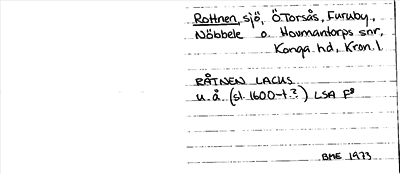 Rottnen, sjö, Ö.Torsås, Furuby,
Nöbbele o. Hovmantorps snr,
Konga hd, Kron. l.
RÅTNEN LACUS
u. å. (sl. 1600-t.?) LSA F8
BME 1973